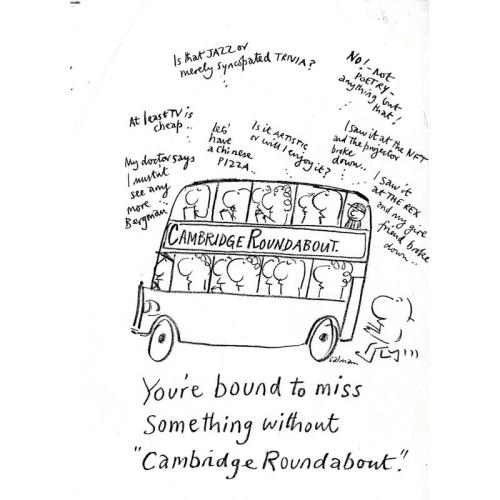 Is that JAZZ or
merely syncopated TRIVIA?
No! - not
POETRY -
anything but
that!
At least TV is
cheap..
let's
have
a Chinese
PIZZA..
Is it ARTISTIC
or will I enjoy it?
I saw it at the NFT
and the projector
broke
down..
My doctor says
I mustnt
see any
more
Bergman..
I saw it
at THE REX
and my
friend broke
down..
CAMBRIDGE ROUNDABOUT.
salman
You're bound to miss
Something without
"Cambridge Roundabout".